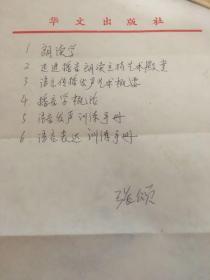 华文出版社
1 朗读学
2 走进播音朗读主持艺术殿堂
3 语言传播发声艺术概要
4 播音学概论
5 语言发声训练手册
6 语言表达训练手册
张颂